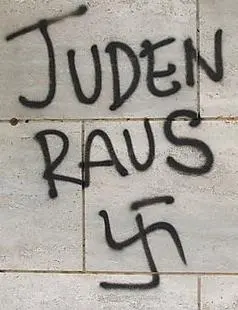 JUDEN
RAUS